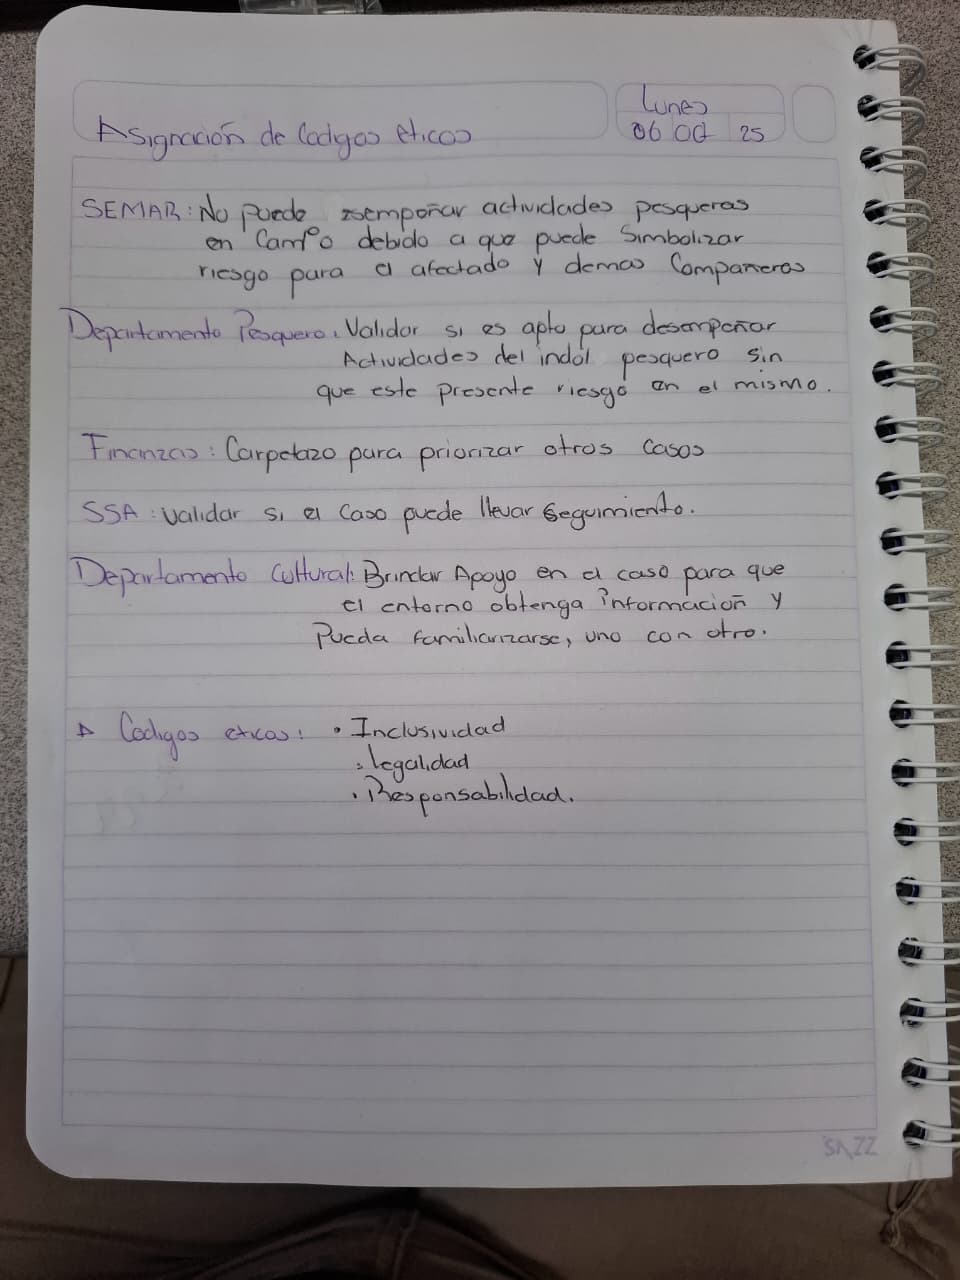 Lunes
Asignación de Codigos eticos
06 Oct 25
SEMAR: No puede desempeñar actividades pesqueras
en Campo debido a que puede Simbolizar
riesgo para el afectado y demas Compañeros
Departamento Pesquero: Validar si es apto para desempeñar
Actividades del indol pesquero sin
que este presente riesgo en el mismo.
Finanzas: Carpetazo para priorizar otros casos
SSA: Validar si el Caso puede llevar seguimiento.
Departamento Cultural: Brindar Apoyo en el caso para que
el entorno obtenga información y
Pueda familiarizarse, uno con otro.
Codigos eticos: • Inclusividad
• Legalidad
• Responsabilidad.
SAZZ